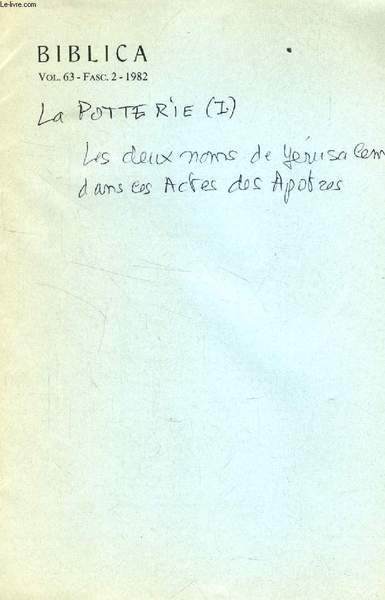 © Le-livre.com
BIBLICA
VOL. 63 - FASC. 2 - 1982
La POTTERIE (I)
Les deux noms de Jérusalem
dans les Actes des Apotres